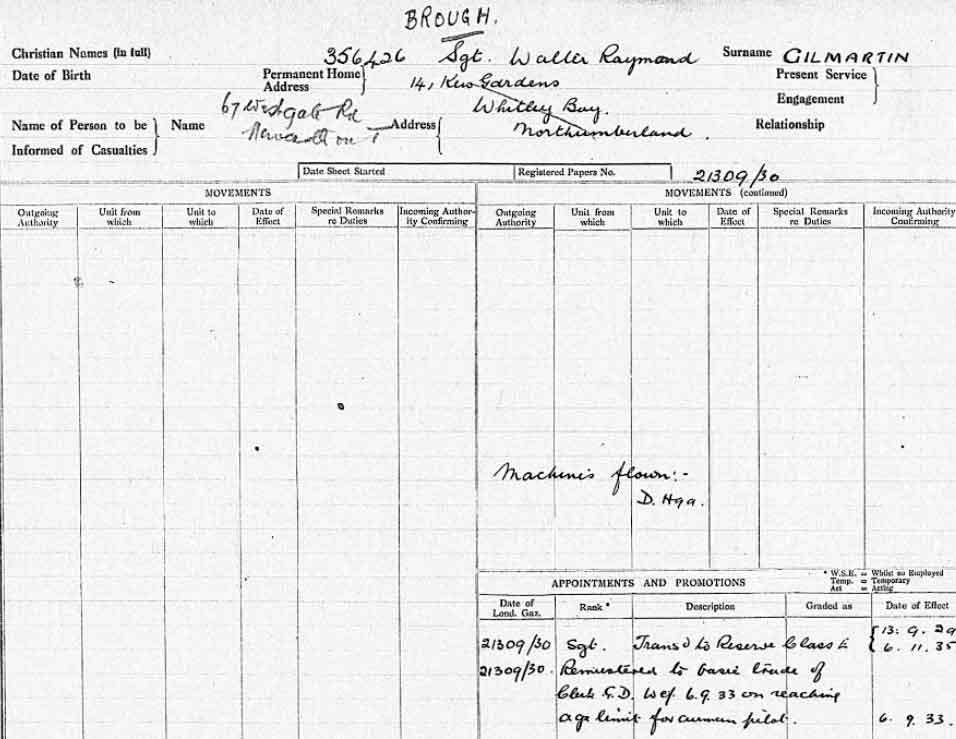 BROUGH.
Christian Names (in full) 356426 Sgt. Walter Raymond Surname GILMARTIN
Date of Birth Permanent Home Address 14, Kew Gardens Present Service
Whitley Bay. Engagement
67 Westgate Rd
Newcastle on T
Name of Person to be Informed of Casualties Name Address Northumberland. Relationship
Date Sheet Started Registered Papers No. 21309/30
MOVEMENTS MOVEMENTS (continued)
Outgoing Authority Unit from which Unit to which Date of Effect Special Remarks re Duties Incoming Authority Confirming Outgoing Authority Unit from which Unit to which Date of Effect Special Remarks re Duties Incoming Authority Confirming
Machines flown:-
D. H9a.
APPOINTMENTS AND PROMOTIONS
* W.S.E. = Whilst so Employed
Temp. = Temporary
Act = Acting
Date of Lond. Gaz. Rank * Description Graded as Date of Effect
21309/30 Sgt. Transd to Reserve Class E 13. 9. 29
6. 11. 35
21309/30. Remustered to basic trade of
Clerk G.D. wef 6.9.33 on reaching
age limit for airman pilot. 6. 9. 33.